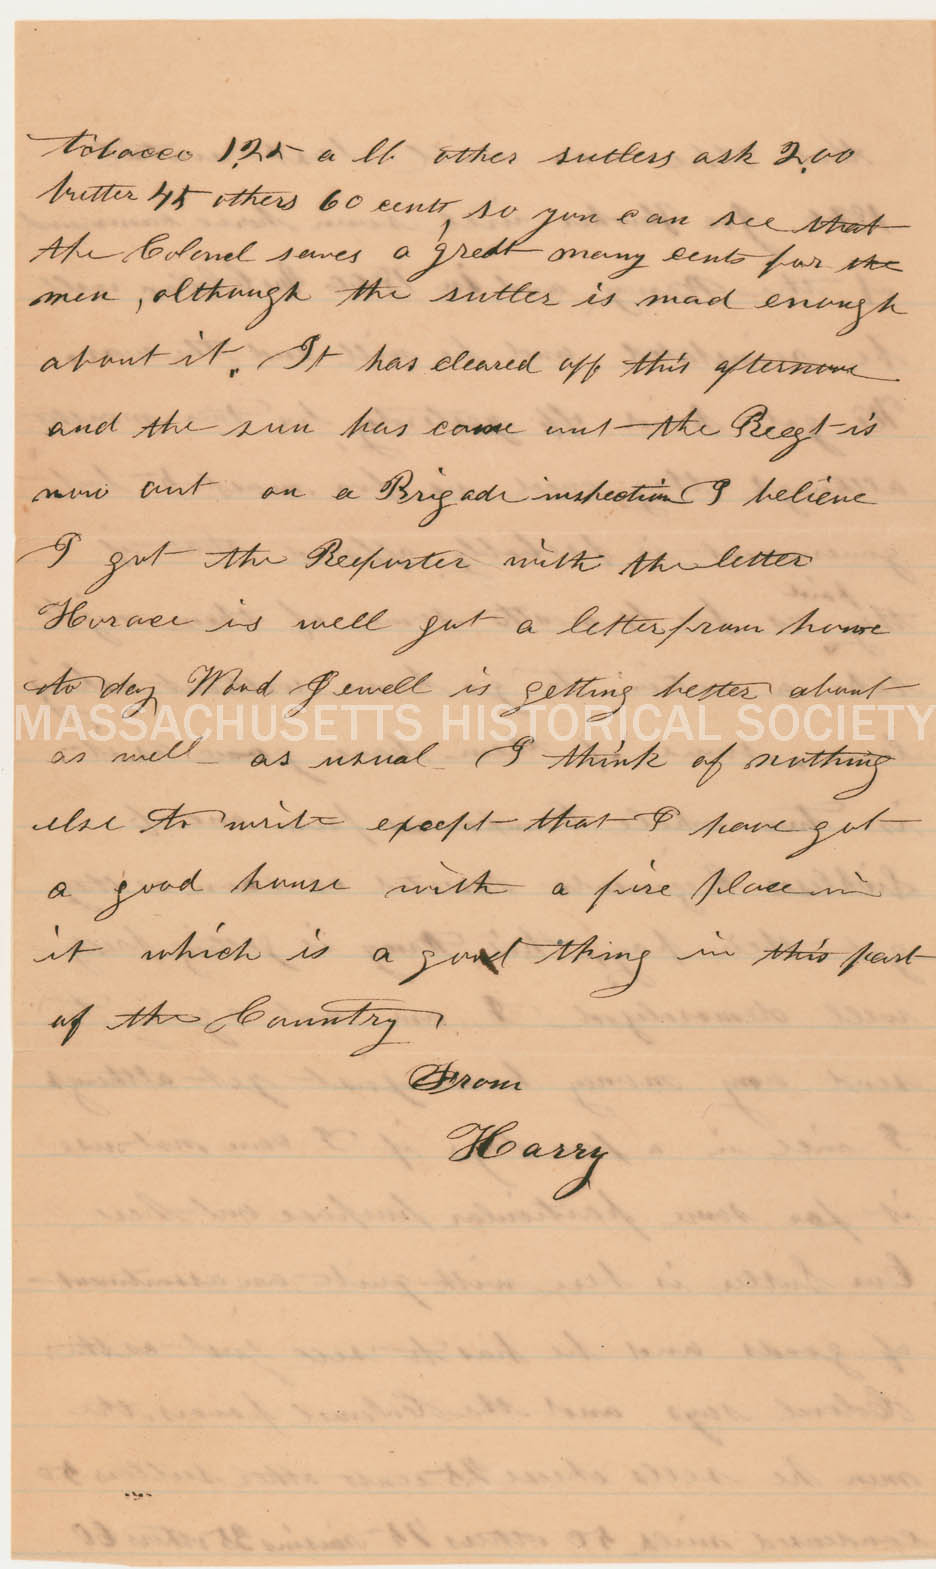 tobacco 1.25 a lb. other sutlers ask 2.00
butter 45 others 60 cents, so you can see that
the Colonel saves a great many cents for the
men, although the sutler is mad enough
about it. It has cleared off this afternoon
and the sun has come out the Reegt is
now out on a Brigade inspection I believe
I got the Reeporter with the letter
Horace is well got a letter from home
to day Wood Jewell is getting better about
MASSACHUSETTS HISTORICAL SOCIETY
as well as usual I think of nothing
else to write except that I have got
a good house with a fire place in
it which is a good thing in this part
of the Country
From
Harry